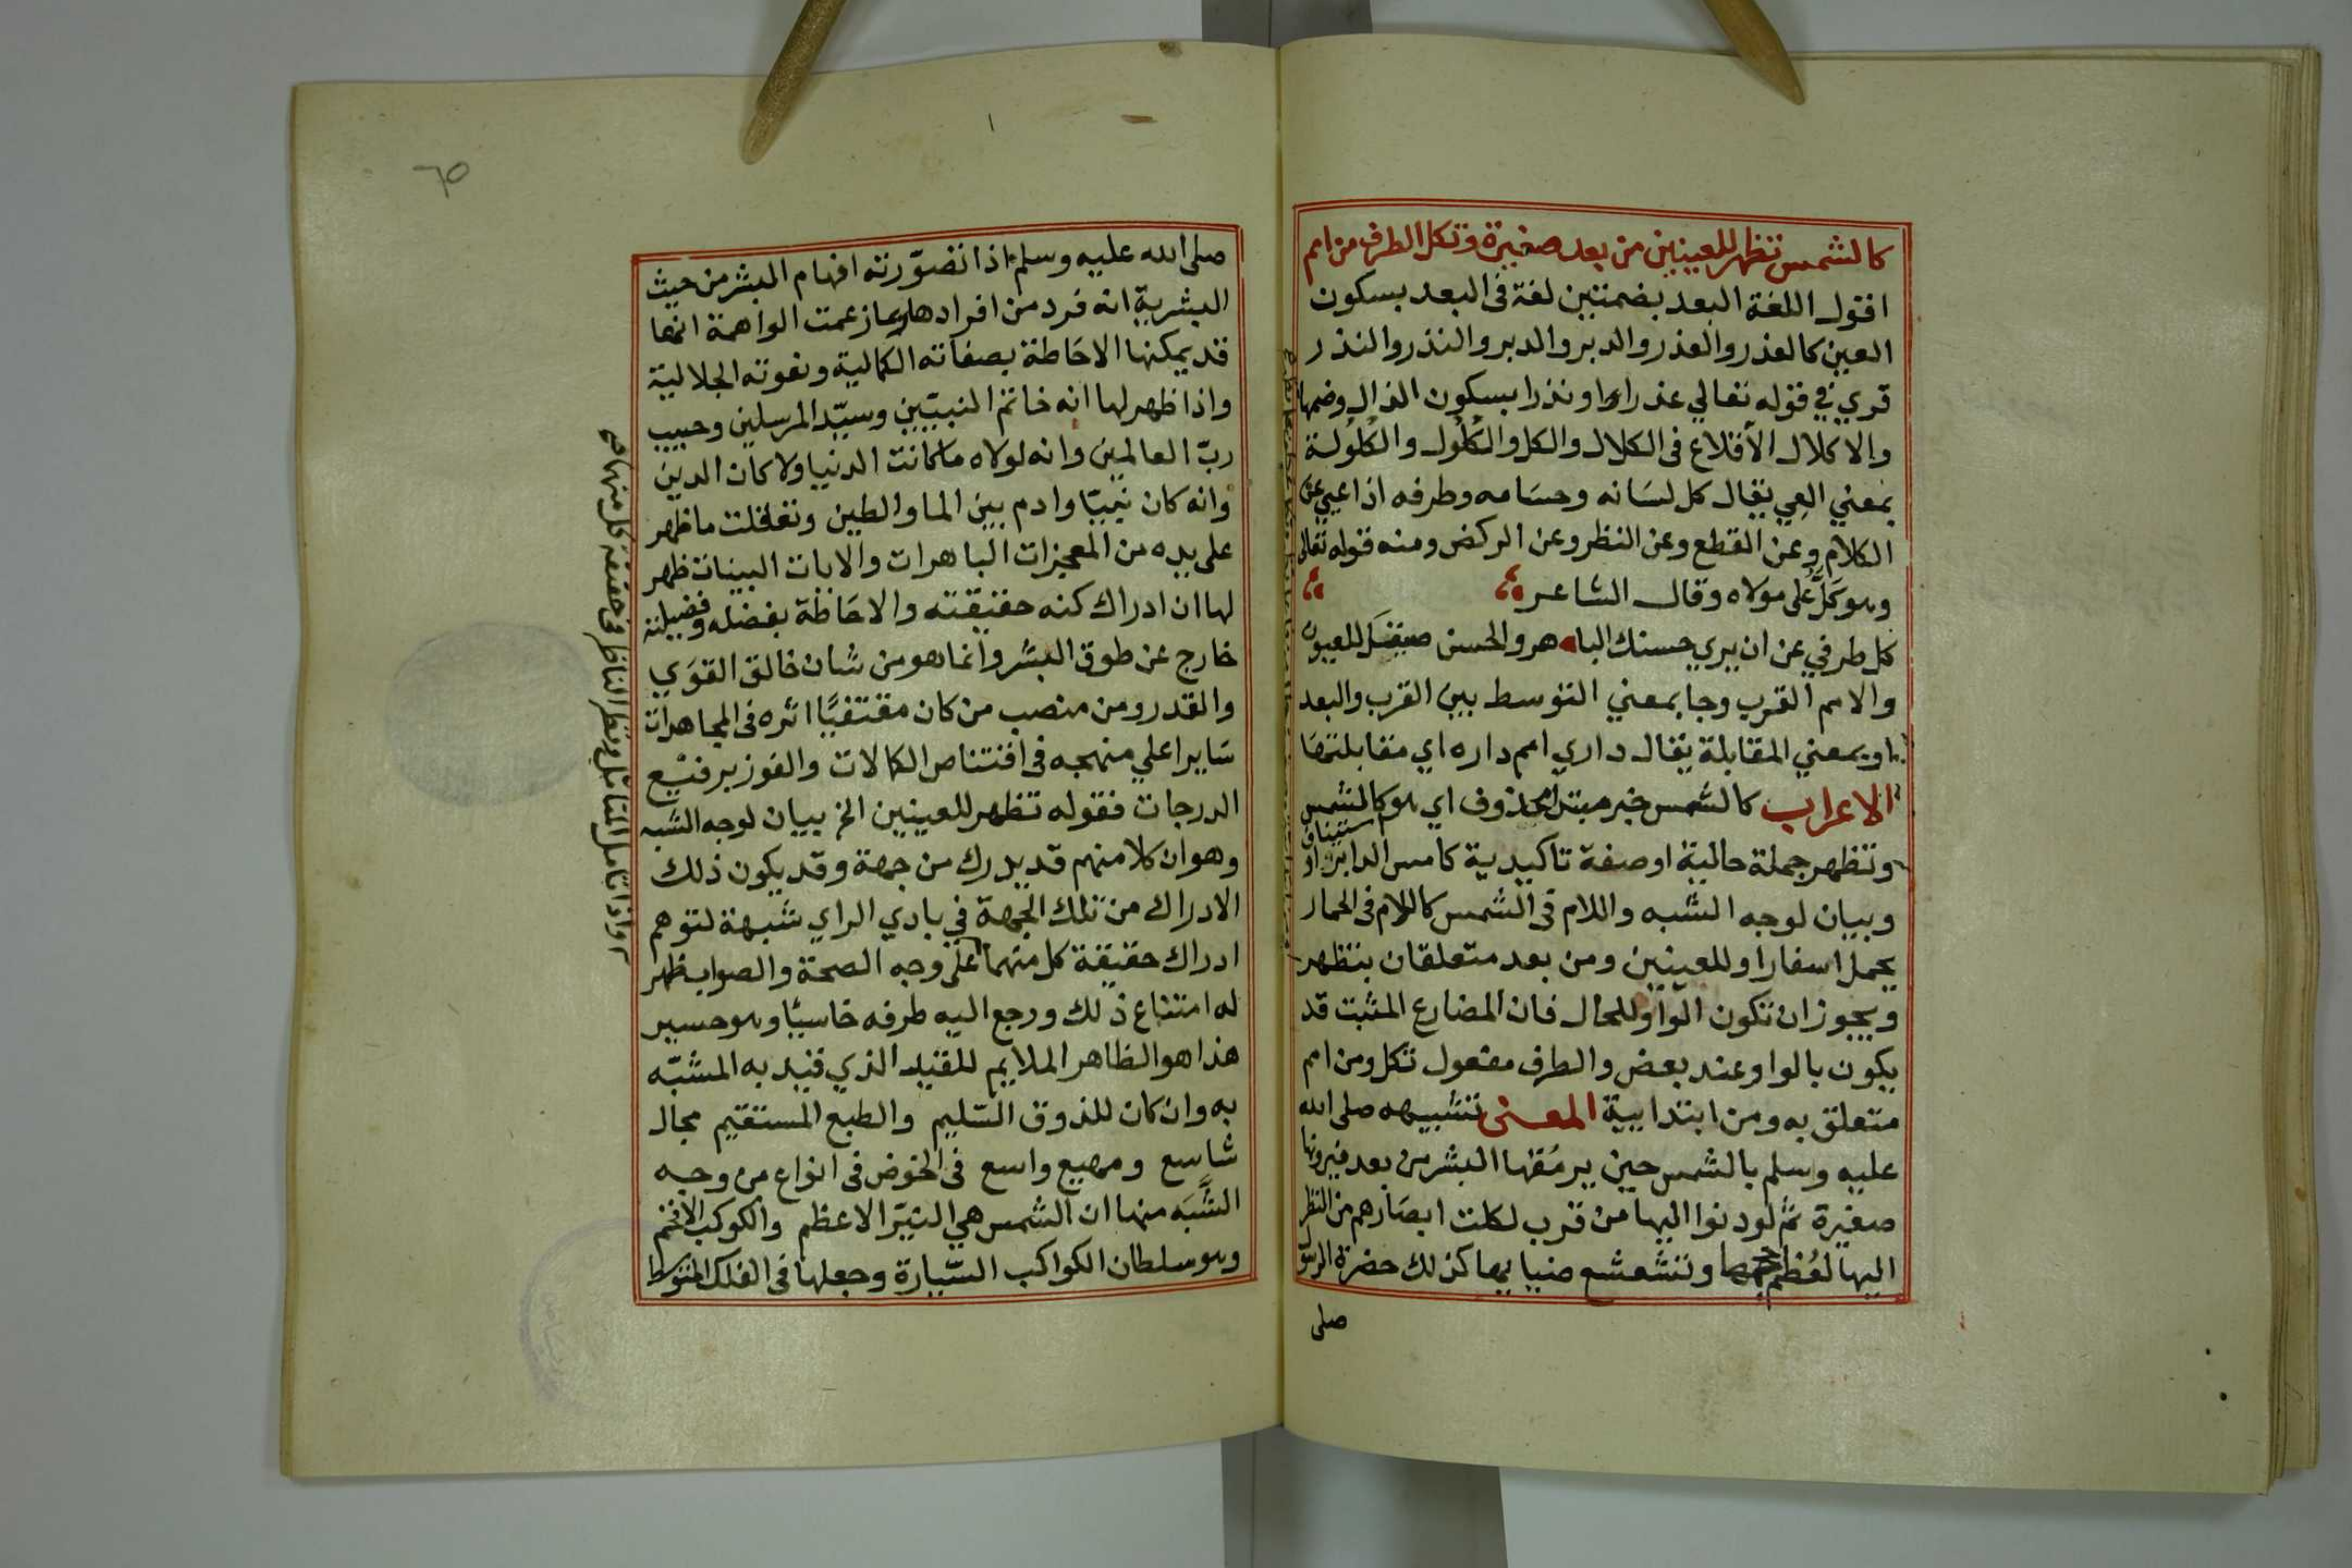 كالشمس تظهر للعينين من بعد صغيرة وتكل الطرف من امم
اقول اللغة البعد بضمتين لغة في البعد بسكون
العين كالعذر والعذر والدبر والدبر والنذر والنذر
قري في قوله تعالي عذرا او نذرا بسكون الذال وضمها
والاكلال الأقلاع في الكلال والكل والكُلُول والكُلُولة
بمعني العِي يقال كل لسَانه وحسَامه وطرفه اذا عيي عن
الكلام وعن القطع وعن النظر وعن الركض ومنه قوله تعالي
وهو كَلٌّ على مولاه وقال الشاعر
كل طرفي عن ان يري حسنك الباهر والحسن صيقل للعيون
والامم القرب وجا بمعني التوسط بين القرب والبعد
او بمعني المقابلة يقال داري امم داره اي مقابلتها
الاعراب كالشمس خبر مبتدا محذوف اي هو كالشمس
وتظهر جملة حالية او صفة تاكيدية كامس الدابر او استيناف
وبيان لوجه الشبه واللام في الشمس كاللام في الحمار
يحمل اسفارا وللعينين ومن بعد متعلقان بتظهر
ويجوز ان تكون الواو للحال فان المضارع المثبت قد
يكون بالواو عند بعض والطرف مفعول تكل ومن امم
متعلق به ومن ابتدايية المعنى تشبيهه صلى الله
عليه وسلم بالشمس حين يرمُقها البشر من بعد فيرونها
صغيرة ثم لو دنوا اليها من قرب لكلت ابصَارهم من النظر
اليها لعُظم حجمها وتشعشع ضيايها كذلك حضرة الرسول
صلى
٦٥
صلى الله عليه وسلم اذا تصوّرته افهام البشر من حيث
البشرية انه فرد من افرادها ربما زعمت الواهمة انها
قد يمكنها الاحَاطة بصفاته الكمالية ونعوته الجلالية
واذا ظهر لها انه خاتم النبيّين وسيّد المرسلين وحبيب
ربّ العالمين وانه لولاه ما كانت الدنيا ولا كان الدين
وانه كان نبيّا وادم بين الما والطين وتعقلت ما ظهر
على يده من المعجزات الباهرات والايات البينات ظهر
لها ان ادراك كنه حقيقته والاحَاطة بفضله وفضيلته
خارج عن طوق البشر وانما هو من شان خالق القوَي
والقدر ومن منصب من كان مقتفيًا اثره في المجاهدات
سَايرا علي منهجه في اقتناص الكمالات والفوز برفيع
الدرجات فقوله تظهر للعينين الخ بيان لوجه الشبه
وهو ان كلا منهم قد يدرك من جهة وقد يكون ذلك
الادراك من تلك الجهة في بادي الراي شبهة لتوهم
ادراك حقيقة كل منهما على وجه الصحة والصواب ظهر
له امتناع ذلك ورجع اليه طرفه خاسيًا وهو حسير
هذا هو الظاهر الملايم للقيد الذي قيد به المشبّه
به وان كان للذوق السّليم والطبع المستقيم مجال
شاسع ومهيع واسع في الخوض في انواع من وجه
الشَّبَه منها ان الشمس هي النيّر الاعظم والكوكب الافخم
وهو سلطان الكواكب السّيارة وجعلها في الفلك المتوسط
واذا تامل المتامل ونظر الناظر في حقيقة كل منهما صح